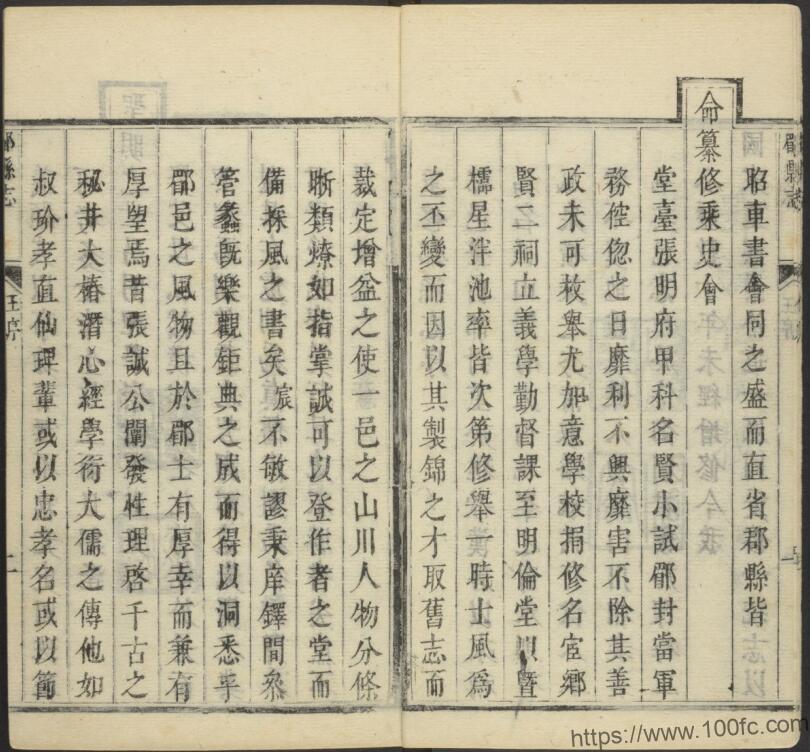 昭車書會同之盛而直省郡縣皆
命纂修乘史會
堂臺張明府甲科名賢小試郿封當軍
務倥偬之日靡利不興靡害不除其善
政未可枚舉尤加意學校捐修名宦鄉
賢二祠立義學勤督課至明倫堂以暨
櫺星泮池率皆次第修舉一時士風為
之丕變而因以其製錦之才取舊志而
裁定增益之使一邑之山川人物分條
晰類燎如指掌誠可以登作者之堂而
備採風之書矣宸不敏謬秉庠鐸間亦
管蠡既樂觀鉅典之成而得以洞悉乎
郿邑之風物且於郿士有厚幸而兼有
厚望焉昔張誠公闡發性理啓千古之
秘井大椿潛心經學衍大儒之傳他如
叔玠孝直仙理輩或以忠孝名或以節
郿縣志
王序
二
https://www.100fc.com